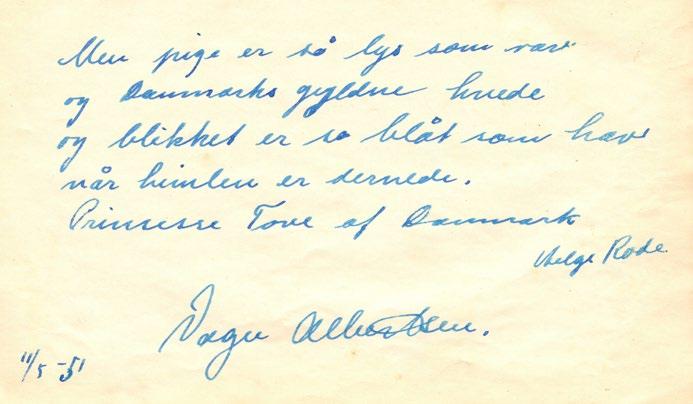 Men pige er så lys som rav
og Danmarks gyldne hvede
og blikket er så blåt som hav
når himlen er dernede.
Prinsesse Tove af Danmark
Helge Rode
Vagn Albertsen.
11/5 -51